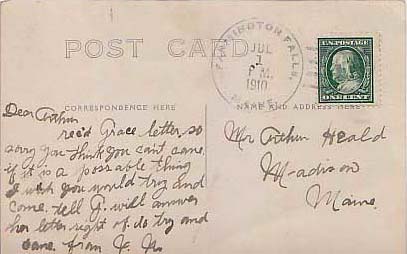 POST CARD
FARMINGTON FALLS,
JUL
1
P.M.
1910
MAINE
U.S. POSTAGE
ONE CENT
CORRESPONDENCE HERE
NAME AND ADDRESS HERE
Dear Arthur
rec'd Grace letter, so
sorry you think you cant come,
if it is a possable thing
I wish you would try and
come. tell G. will answer
her letter right of. do try and
come. from
Mr Arthur Heald
Madison
Maine.